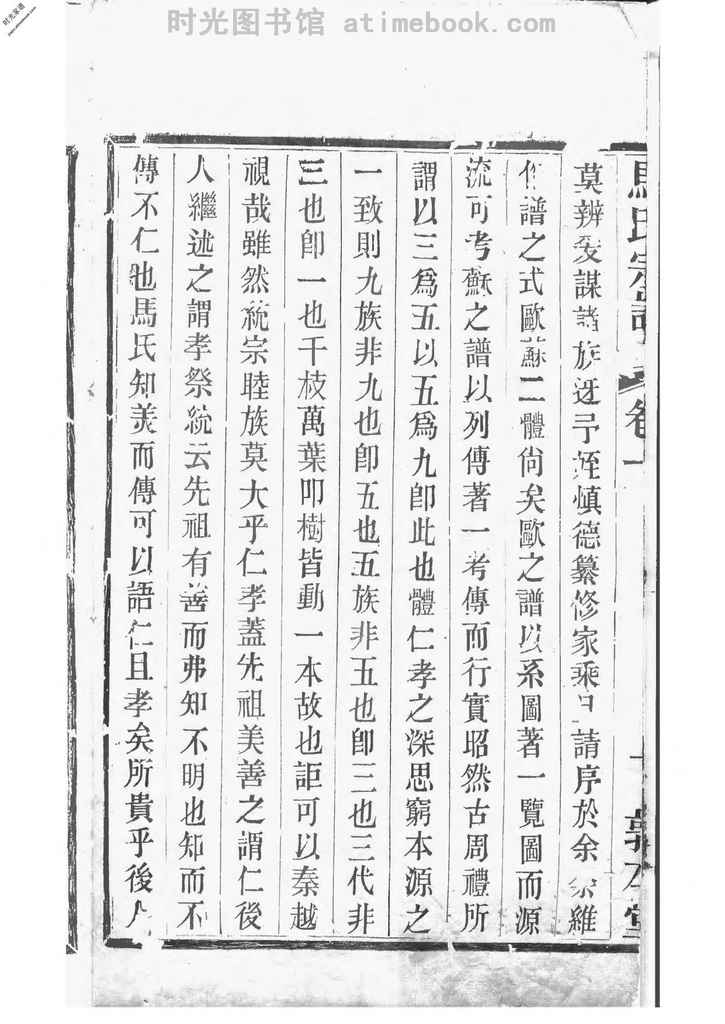 时光图书馆 atimebook.com
时光家谱
www.atimebook.com
馬氏宗譜 卷一 敦本堂
莫辨爰謀諸族迓予姪慎德纂修家乘日請序於余余維
作譜之式歐蘇二體尙矣歐之譜以系圖著一覽圖而源
流可考蘇之譜以列傳著一考傳而行實昭然古周禮所
謂以三爲五以五爲九卽此也體仁孝之深思窮本源之
一致則九族非九也卽五也五族非五也卽三也三代非
三也卽一也千枝萬葉叩樹皆動一本故也詎可以秦越
視哉雖然統宗睦族莫大乎仁孝蓋先祖美善之謂仁後
人繼述之謂孝祭統云先祖有善而弗知不明也知而不
傳不仁也馬氏知美而傳可以語仁且孝矣所貴乎後人